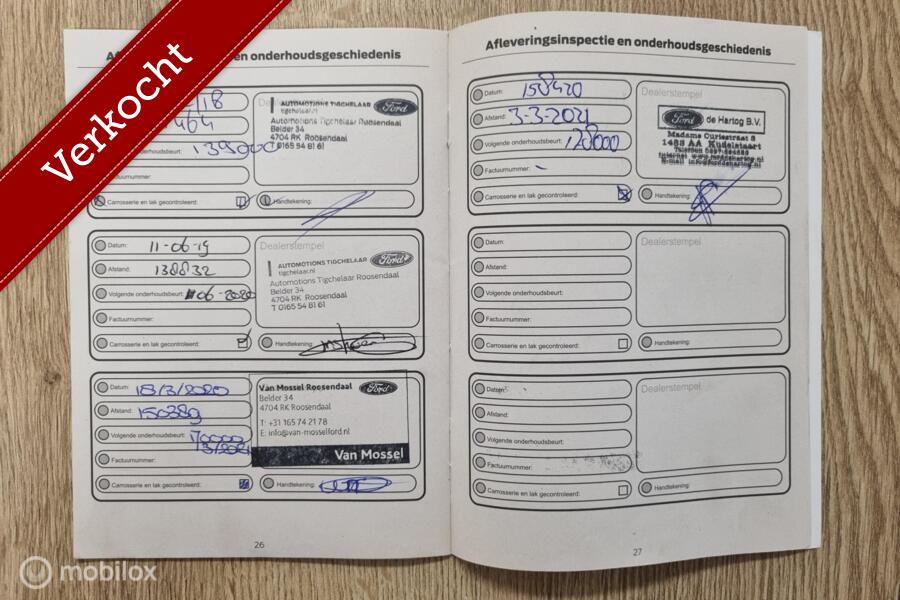 Verkocht
en onderhoudsgeschiedenis
/18
464
onderhoudsbeurt: 139000
Factuurnummer:
Carrosserie en lak gecontroleerd:
AUTOMOTIONS TIGCHELAAR
tigchelaar.nl
Ford
Automotions Tigchelaar Roosendaal
Belder 34
4704 RK Roosendaal
T 0165 54 81 61
Handtekening:
Datum: 11-06-19
Afstand: 138832
Volgende onderhoudsbeurt: 06-2020
Factuurnummer:
Carrosserie en lak gecontroleerd:
Dealerstempel
AUTOMOTIONS TIGCHELAAR
tigchelaar.nl
Ford
Automotions Tigchelaar Roosendaal
Belder 34
4704 RK Roosendaal
T 0165 54 81 61
Handtekening:
Datum: 18/3/2020
Afstand: 150389
Volgende onderhoudsbeurt: 170000
3/2021
Factuurnummer:
Carrosserie en lak gecontroleerd:
Van Mossel Roosendaal
Ford
Belder 34
4704 RK Roosendaal
T: +31 165 74 21 78
E: info@van-mosselford.nl
Van Mossel
Handtekening:
26
Afleveringsinspectie en onderhoudsgeschiedenis
Datum: 158420
Afstand: 3-3-2021
Volgende onderhoudsbeurt: 178000
Factuurnummer: -
Carrosserie en lak gecontroleerd:
Dealerstempel
Ford de Hartog B.V.
Madame Curiestraat 8
1433 AA Kudelstaart
Handtekening:
Datum:
Afstand:
Volgende onderhoudsbeurt:
Factuurnummer:
Carrosserie en lak gecontroleerd:
Dealerstempel
Handtekening:
Datum:
Afstand:
Volgende onderhoudsbeurt:
Factuurnummer:
Carrosserie en lak gecontroleerd:
Dealerstempel
Handtekening:
27
mobilox